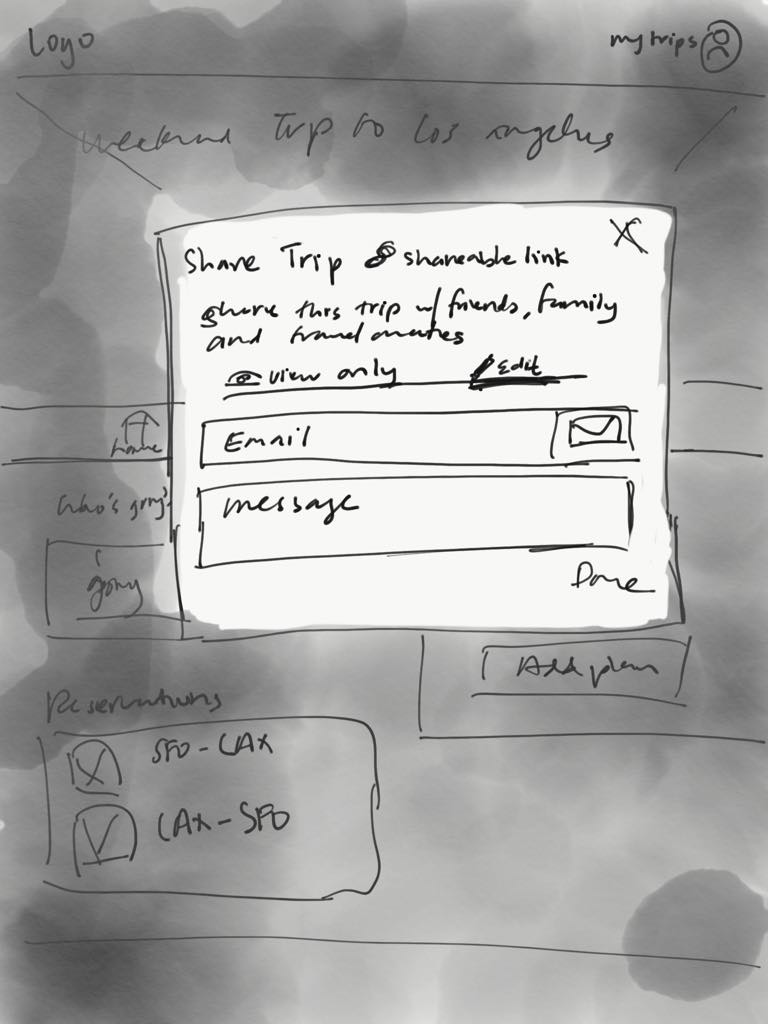 Logo
my trips
Weekend Trip to Los Angeles
Share Trip shareable link
X
share this trip w/ friends, family
and travel mates
view only Edit
Email
home
message
who's going
going
Done
Add plan
Reservations
SFO - LAX
LAX - SFO